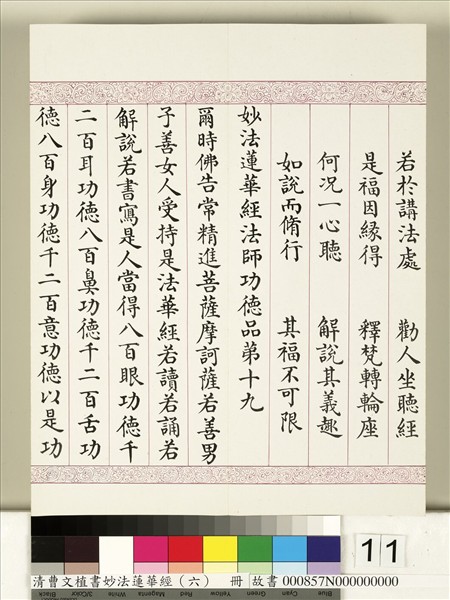 若於講法處　勸人坐聽經
是福因緣得　釋梵轉輪座
何況一心聽　解說其義趣
如說而脩行　其福不可限
妙法蓮華經法師功德品第十九
爾時佛告常精進菩薩摩訶薩若善男
子善女人受持是法華經若讀若誦若
解說若書寫是人當得八百眼功德千
二百耳功德八百鼻功德千二百舌功
德八百身功德千二百意功德以是功
11
清曹文植書妙法蓮華經（六）　冊　故書 000857N000000000
Black 3/Color White Magenta Red Yellow Green Cyan Blue